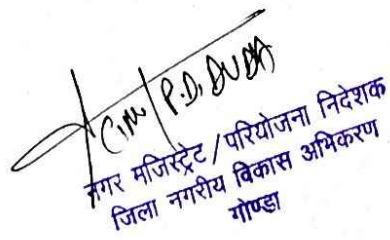 CM / P.D. DUDA
नगर मजिस्ट्रेट / परियोजना निदेशक
जिला नगरीय विकास अभिकरण
गोण्डा